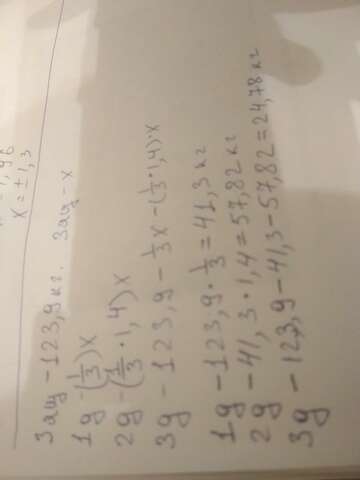 x = ± 1,3
Зад - 123,9 кг. Зад - x
1g - (1/3)x
2g - (1/3 · 1,4)x
3g - 123,9 - 1/3 x - (1/3 · 1,4) · x
1g - 123,9 · 1/3 = 41,3 кг
2g - 41,3 · 1,4 = 57,82 кг
3g - 123,9 - 41,3 - 57,82 = 24,78 кг